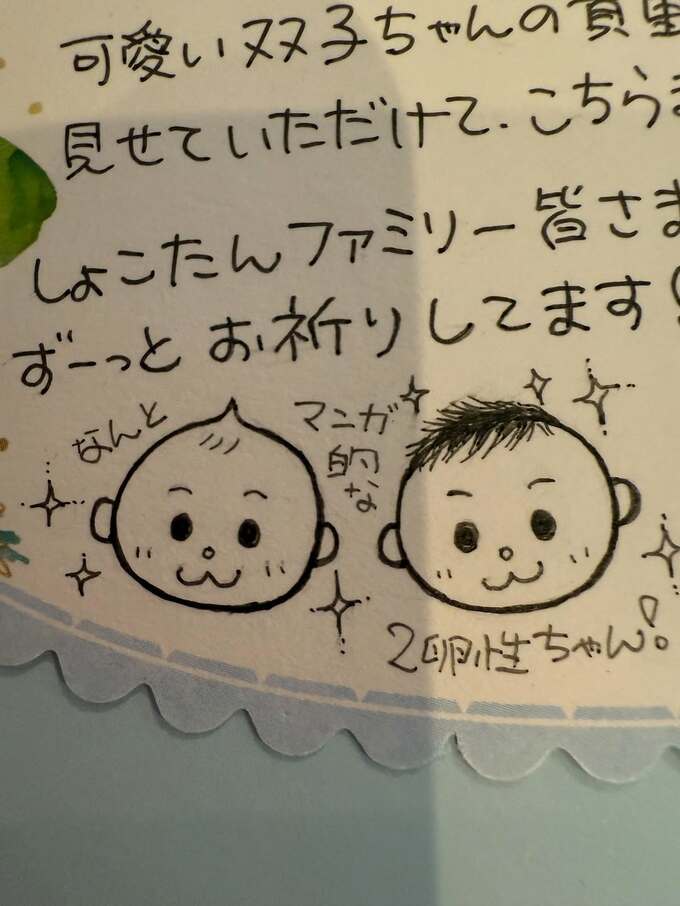 可愛い双子ちゃんの真
見せていただけて、こちらま
しょこたんファミリー皆さま
ずーっとお祈りしてます!
なんと
マンガ
的な
2卵性ちゃん!